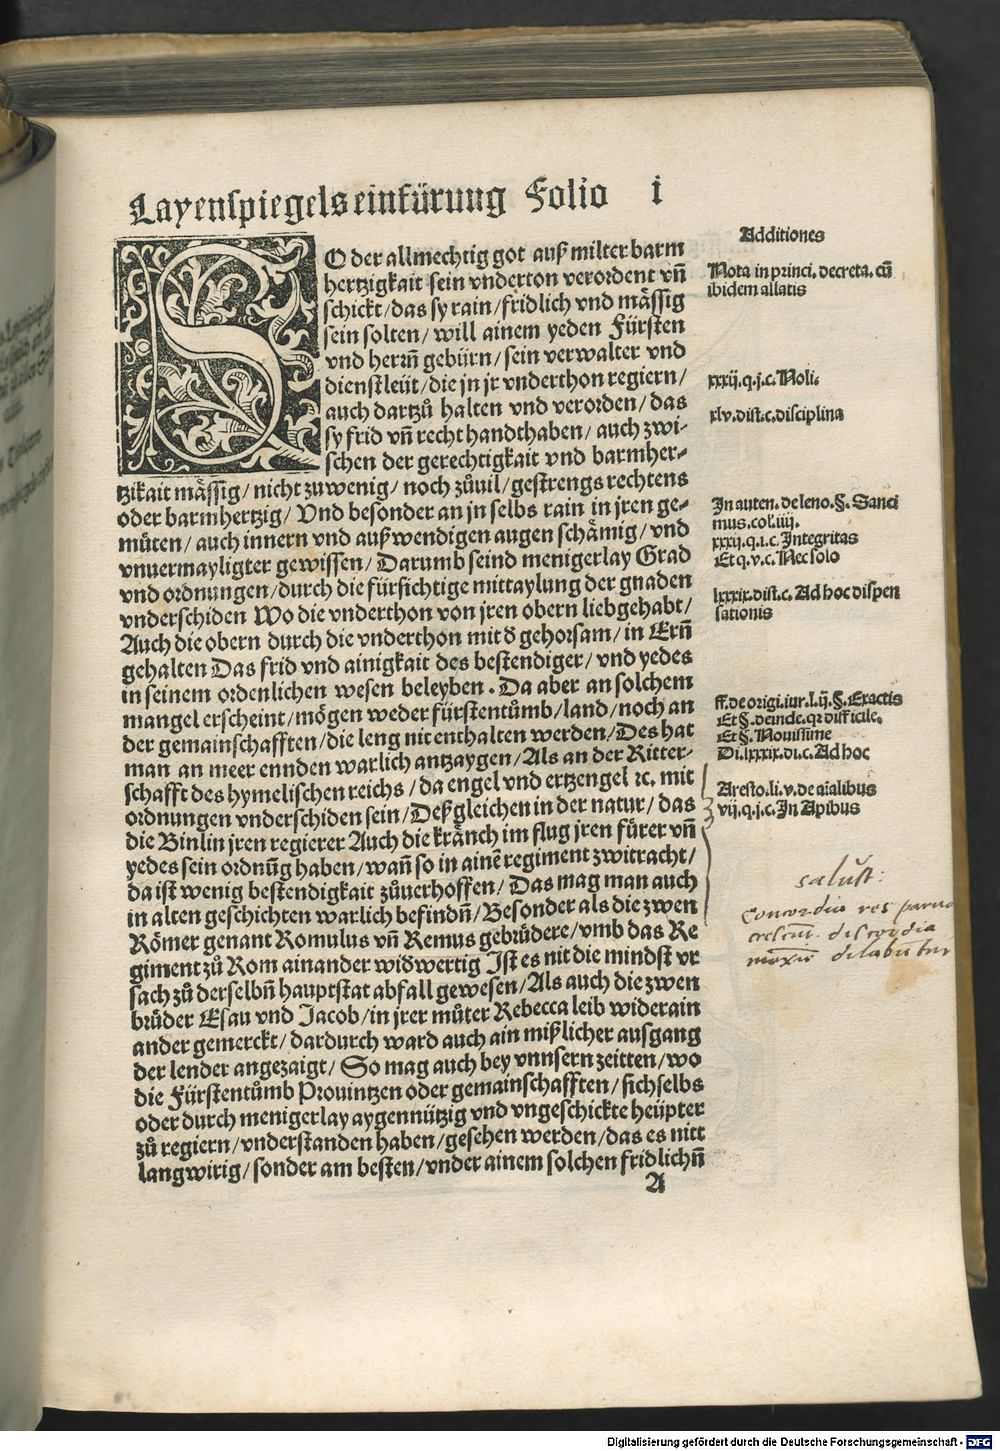 Layenspiegels einfürung Folio i
SO der allmechtig got auß milter barm
hertzigkait sein vnderton verordent vñ
schickt/das sy rain/fridlich vnd mässig
sein solten/ will ainem yeden Fürsten
vnd herrñ gebürn/sein verwalter vnd
dienstleüt/die jn jr vnderthon regiern/
auch dartzů halten vnd verorden/das
sy frid vñ recht handthaben/ auch zwi-
schen der gerechtigkait vnd barmher-
tzikait mässig/nicht zuwenig/noch zůuil/gestrengs rechtens
oder barmhertzig/ Vnd besonder an jn selbs rain in jren ge-
müten/auch innern vnd außwendigen augen schämig/vnd
vnuermayligter gewissen/ Darumb seind menigerlay Grad
vnd ordnungen/durch die fürsichtige mittaylung der gnaden
vnderschiden Wo die vnderthon von jren obern liebgehabt/
Auch die obern durch die vnderthon mit d gehorsam/in Ern̄
gehalten Das frid vnd ainigkait des bestendiger/vnd yedes
in seinem ordenlichen wesen beleyben. Da aber an solchem
mangel erscheint/mögen weder fürstentůmb/land/noch an
der gemainschafften/die leng nit enthalten werden/Des hat
man an meer ennden warlich antzaygen/Als an der Ritter-
schafft des hymelischen reichs/da engel vnd ertzengel ꝛc. mit
ordnungen vnderschiden sein/Deßgleichen in der natur/das
die Binlin jren regierer Auch die kränch im flug jren fürer vñ
yedes sein ordnũg haben/wañ so in ainẽ regiment zwitracht/
da ist wenig bestendigkait zůuerhoffen/Das mag man auch
in alten geschichten warlich befindñ/Besonder als die zwen
Römer genant Romulus vñ Remus gebrüdere/vmb das Re
giment zů Rom ainander widwertig Ist es nit die mindst vr
sach zů derselbñ hauptstat abfall gewesen/Als auch die zwen
brüder Esau vnd Jacob/in jrer můter Rebecca leib widerain
ander gemerckt/dardurch ward auch ain mißlicher ausgang
der lender angezaigt/ So mag auch bey vnnsern zeitten/wo
die Fürstentůmb Prouintzen oder gemainschafften/sich selbs
oder durch menigerlay aygennützig vnd vngeschickte heüpter
zů regiern/vnderstanden haben/gesehen werden/das es nitt
langwirig/sonder am besten/vnder ainem solchen fridlichñ
A
Additiones
Nota in princi. decreta. cũ
ibidem allatis
xxxij.q.j.c. Noli.
xlv.dist.c.disciplina
In auten. de leno. §. Sanci
mus.col.iiij.
xxxij.q.i.c. Integritas
Et q.v.c. Nec solo
lxxxix.dist.c. Ad hoc dispen
sationis
ff.de origi.iur.l.ij.§. Exactis
Et §. deinde.qꝛ difficile.
Et §. Nouissime
Di.lxxxix.di.c. Ad hoc
Aresto.li.v.de aĩalibus
vij.q.j.c. In Apibus
salust:
Concordia res paruae
crescũt. discordia
maxĩe dilabũtur
Digitalisierung gefördert durch die Deutsche Forschungsgemeinschaft - DFG